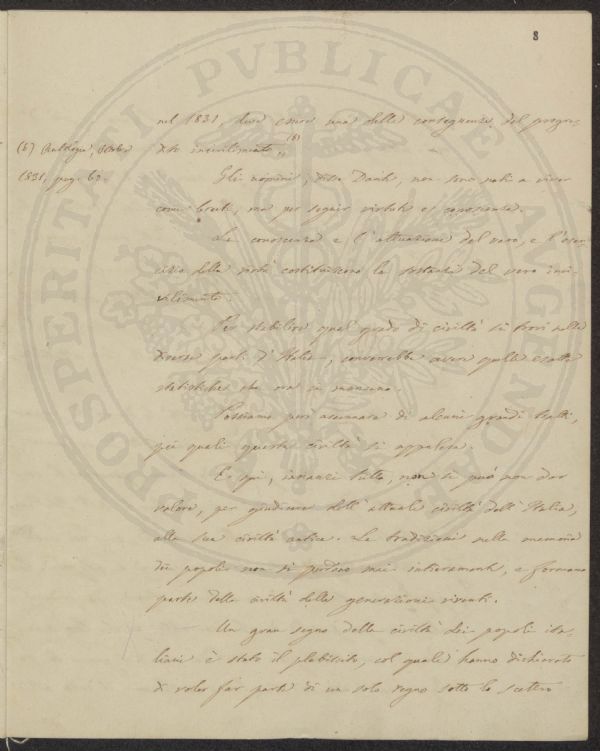 8
nel 1831, deve essere una delle conseguenze del progre-
dito incivilimento „ (6)
(6) Antologia, Octobre
1831, pag. 62.
Gli uomini, disse Dante, non sono nati a viver
come bruti, ma per seguir virtute e conoscenza.
La conoscenza e l'attuazione del vero, e l'eser-
cizio della virtù costituiscono la sostanza del vero inci-
vilimento.
Per stabilire qual grado di civiltà si trovi nelle
diverse parti d'Italia, converrebbe avere quelle esatte
statistiche che ora ci mancano.
Possiamo però accennare di alcuni grandi tratti,
pei quali questa civiltà si appalesa.
E qui, innanzi tutto, non si può non dar
valore, per giudicare dell'attuale civiltà dell'Italia,
alla sua civiltà antica. Le tradizioni nella memoria
dei popoli non si perdono mai intieramente, e formano
parte della civiltà delle generazioni viventi.
Un gran segno della civiltà dei popoli ita-
liani è stato il plebiscito, col quale hanno dichiarato
di voler far parte di un solo regno sotto lo scettro
PROSPERITATI PUBLICAE AUGENDAE